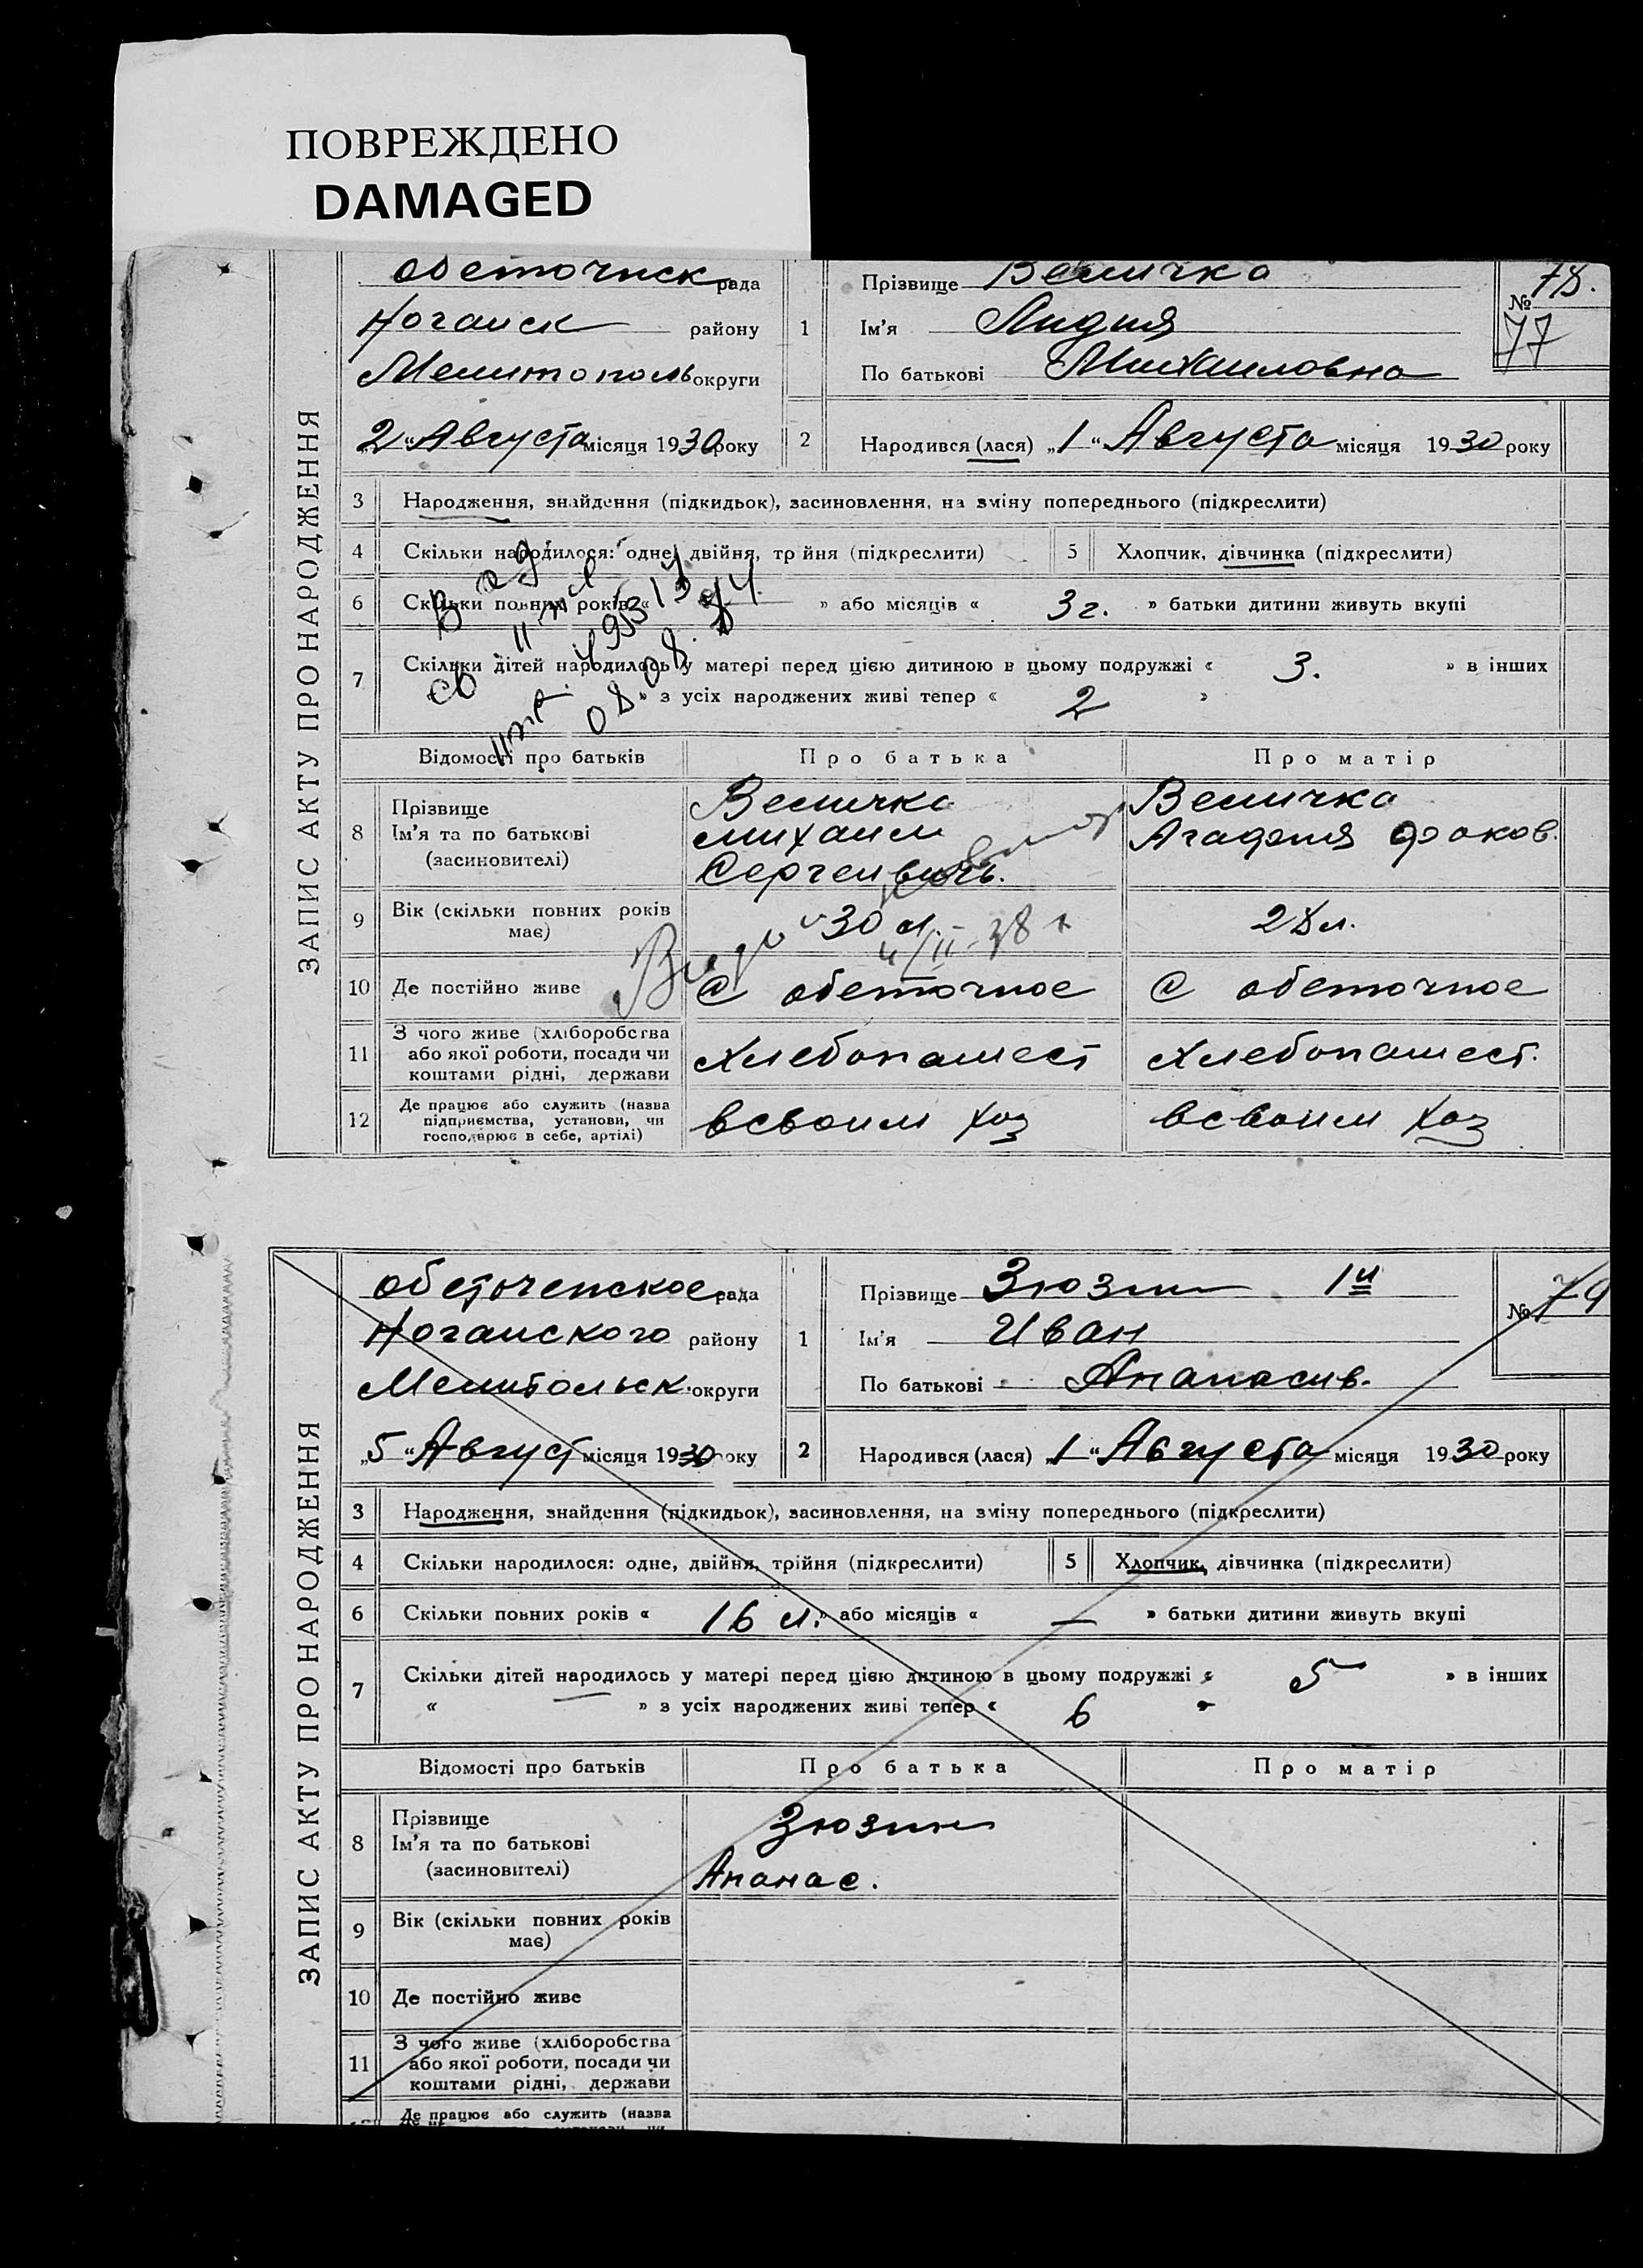 ПОВРЕЖДЕНО
DAMAGED
ЗАПИС АКТУ ПРО НАРОДЖЕННЯ
обеточнск рада
Ногайск району
Мелитополь округи
„2“ Августа місяця 1930 року
1
Прізвище Величка
Ім’я Лидия
По батькові Михаиловна
№ 78.
77
2
Народився (лася) „1“ Августа місяця 1930 року
3 Народження, знайдення (підкидьок), засиновлення, на зміну попереднього (підкреслити)
4 Скільки народилося: одне, двійня, трійня (підкреслити)
5 Хлопчик, дівчинка (підкреслити)
6 Скільки повних років « — » або місяців « 3 г. » батьки дитини живуть вкупі
7 Скільки дітей народилось у матері перед цією дитиною в цьому подружжі « 3. » в інших
» з усіх народжених живі тепер « 2 »
08.08.84
Відомості про батьків Про батька Про матір
8 Прізвище
Ім’я та по батькові
(засиновителі)
Величка
михаил
Сергеевичь.
Величка
Агафия фоков.
9 Вік (скільки повних років має) 30 л. 28 л.
4/II-38
10 Де постійно живе С обеточное С обеточное
11 З чого живе (хліборобства
або якої роботи, посади чи
коштами рідні, держави
Хлебопашест Хлебопашест.
12 Де працює або служить (назва
підприємства, установи, чи
господарює в себе, артілі)
всвоим хоз всвоим хоз
ЗАПИС АКТУ ПРО НАРОДЖЕННЯ
обеточенское рада
Ногайского району
Мелитольск. округи
„5“ Август місяця 1930 року
1
Прізвище Зюзин 1й
Ім’я Иван
По батькові Ананасив.
№ 79
2
Народився (лася) „1“ Августа місяця 1930 року
3 Народження, знайдення (підкидьок), засиновлення, на зміну попереднього (підкреслити)
4 Скільки народилося: одне, двійня, трійня (підкреслити)
5 Хлопчик, дівчинка (підкреслити)
6 Скільки повних років « 16 л. » або місяців « — » батьки дитини живуть вкупі
7 Скільки дітей народилось у матері перед цією дитиною в цьому подружжі « 5 » в інших
« — » з усіх народжених живі тепер « 6 »
Відомості про батьків Про батька Про матір
8 Прізвище
Ім’я та по батькові
(засиновителі)
Зюзин
Ананас.
9 Вік (скільки повних років має)
10 Де постійно живе
11 З чого живе (хліборобства
або якої роботи, посади чи
коштами рідні, держави
Де працює або служить (назва